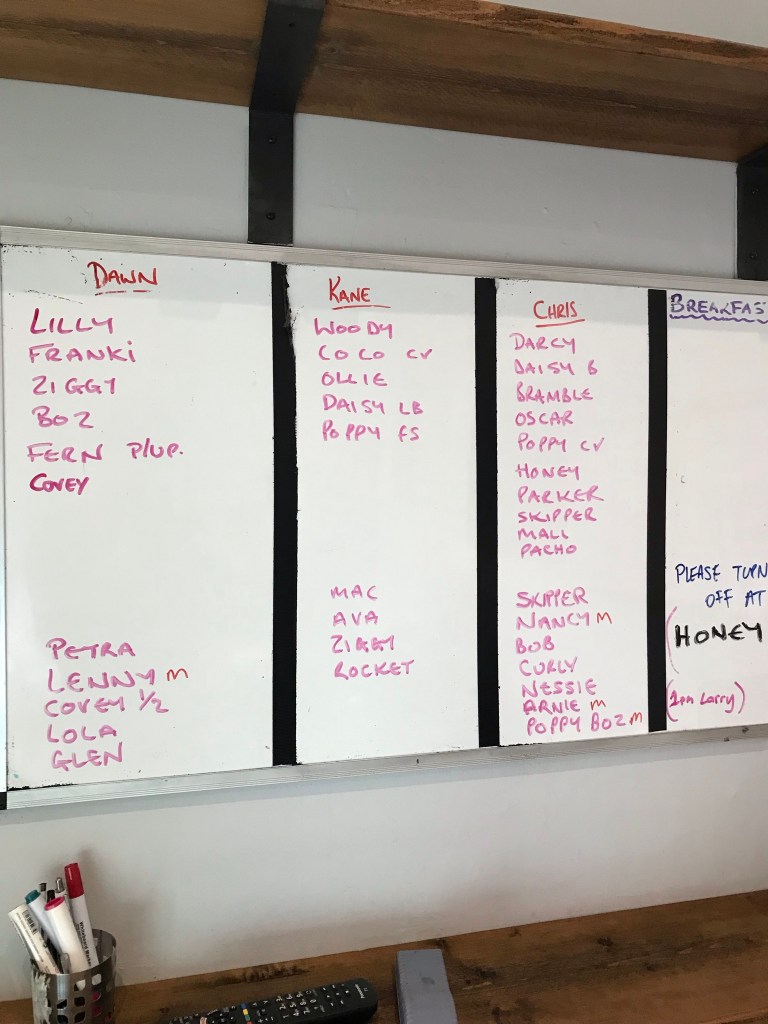 DAWN
LILLY
FRANKI
ZIGGY
BOZ
FERN P/UP.
COVEY
PETRA
LENNY M
COVEY 1/2
LOLA
GLEN
KANE
WOODY
COCO CV
OLLIE
DAISY LB
POPPY FS
MAC
AVA
ZIGGY
ROCKET
CHRIS
DARCY
DAISY B
BRAMBLE
OSCAR
POPPY CV
HONEY
PARKER
SKIPPER
MALL
PACHO
SKIPPER
NANCY M
BOB
CURLY
NESSIE
ARNIE M
POPPY BOZ M
BREAKFAS
PLEASE TURN
OFF AT
HONEY
Lorry)